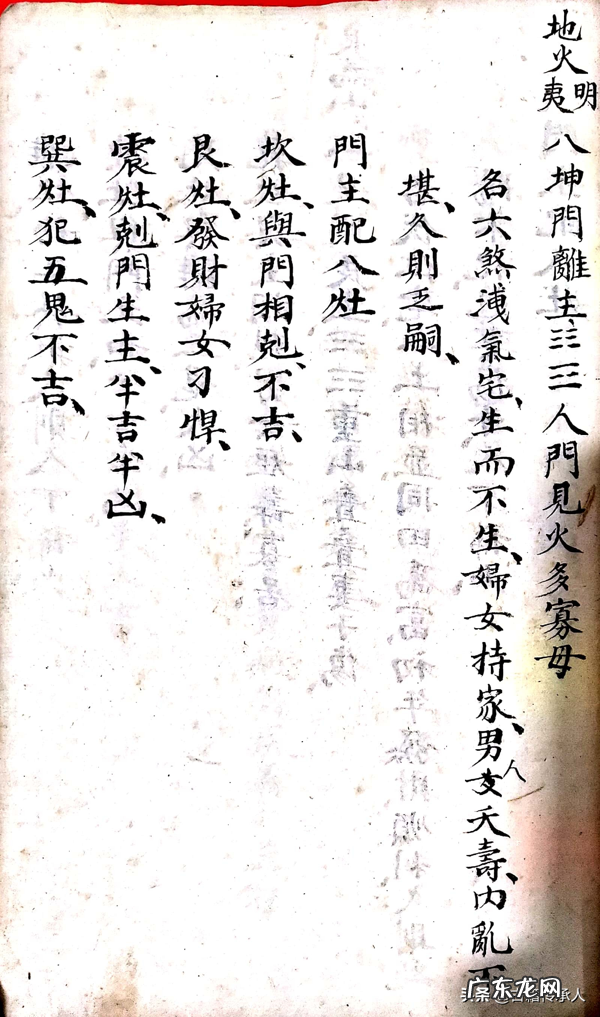 地火明夷 八坤門離主☷☲人門見火多寡母
名六煞洩氣宅、生而不生、婦女持家、男人夭壽、內亂不
堪、久則乏嗣、
門主配八灶
坎灶、與門相剋、不吉、
艮灶、發財婦女刁悍、
震灶、剋門生主、半吉半凶、
巽灶、犯五鬼不吉、
广东龙网